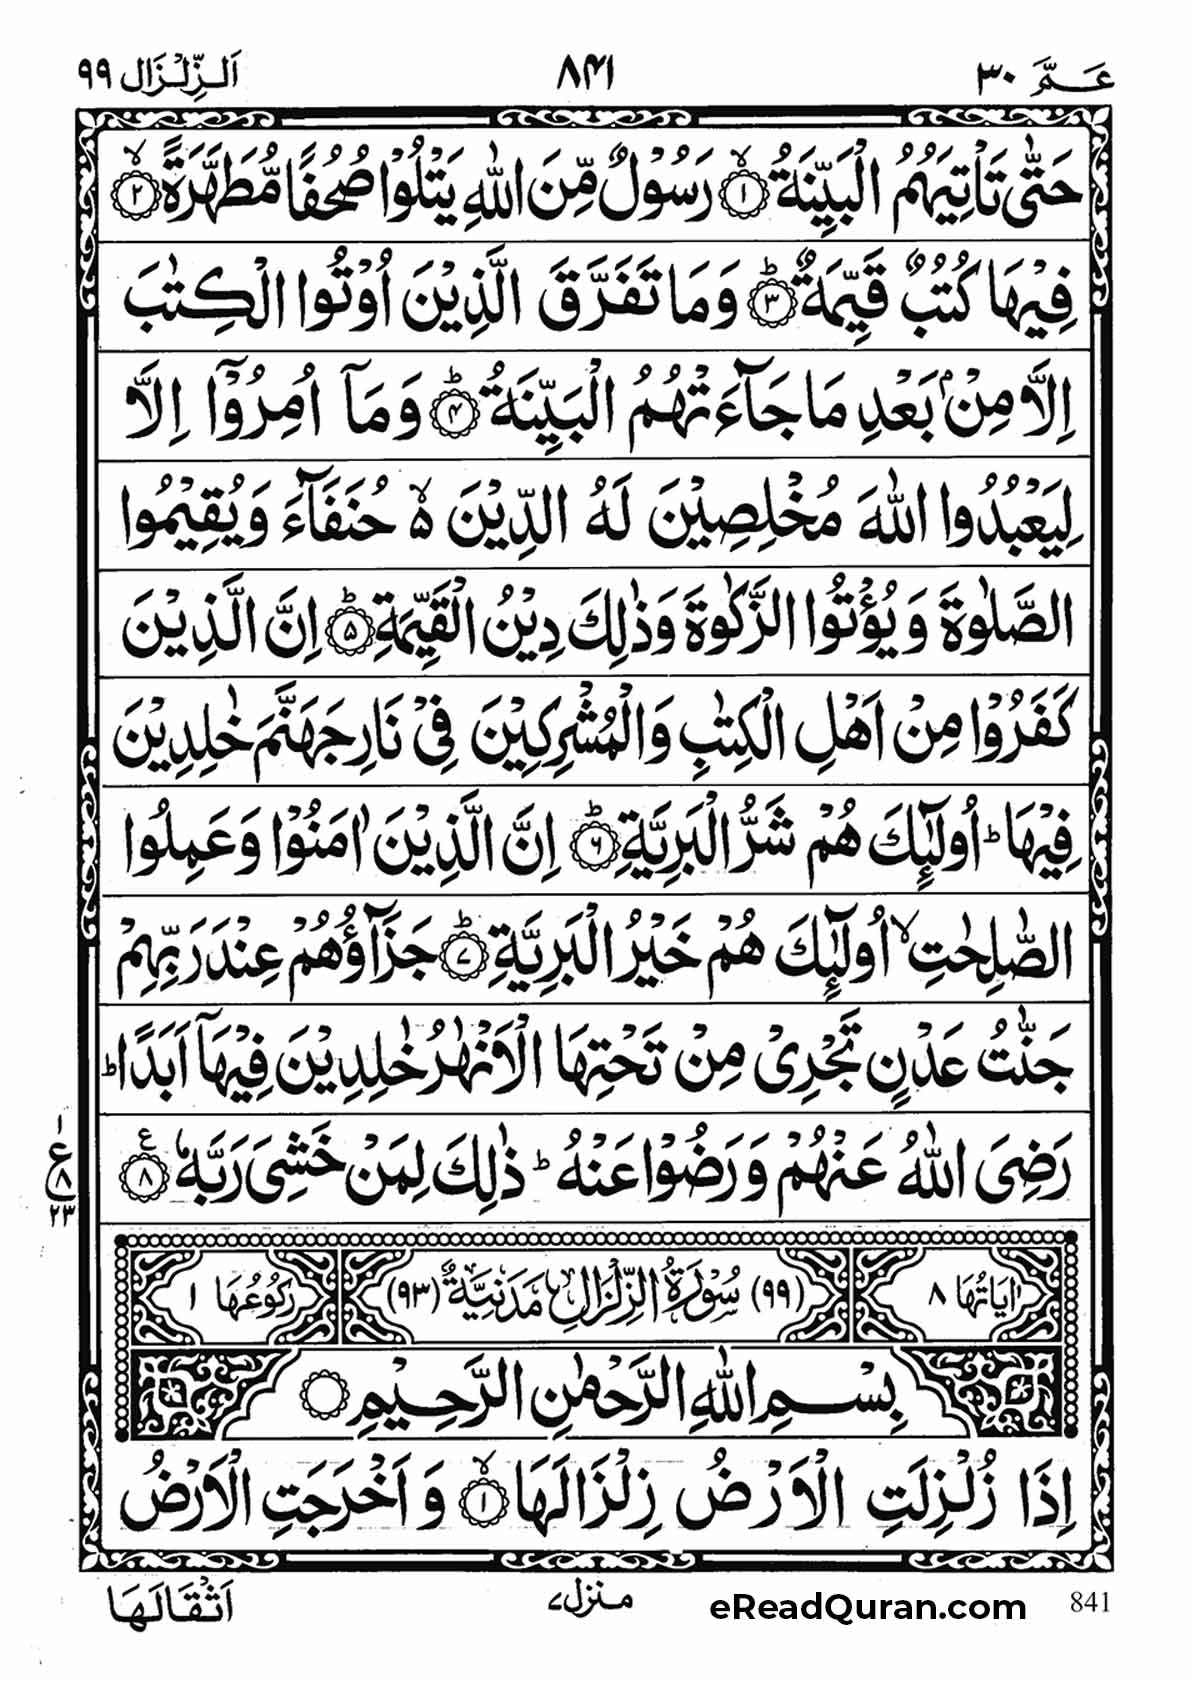 عَـمَّ ٣٠
٨٤١
اَلزِّلْزَال ٩٩
حَتّٰى تَاْتِيَهُمُ الْبَيِّنَةُ ۙ﴿١﴾ رَسُوْلٌ مِّنَ اللّٰهِ يَتْلُوْا صُحُفًا مُّطَهَّرَةً ۙ﴿٢﴾
فِيْهَا كُتُبٌ قَيِّمَةٌ ؕ﴿٣﴾ وَمَا تَفَرَّقَ الَّذِيْنَ اُوْتُوا الْكِتٰبَ
اِلَّا مِنْۢ بَعْدِ مَا جَآءَتْهُمُ الْبَيِّنَةُ ؕ﴿٤﴾ وَمَآ اُمِرُوْۤا اِلَّا
لِيَعْبُدُوا اللّٰهَ مُخْلِصِيْنَ لَهُ الدِّيْنَ ۙ۵ حُنَفَآءَ وَيُقِيْمُوا
الصَّلٰوةَ وَيُؤْتُوا الزَّكٰوةَ وَذٰلِكَ دِيْنُ الْقَيِّمَةِ ؕ﴿۵﴾ اِنَّ الَّذِيْنَ
كَفَرُوْا مِنْ اَهْلِ الْكِتٰبِ وَالْمُشْرِكِيْنَ فِيْ نَارِ جَهَنَّمَ خٰلِدِيْنَ
فِيْهَا ؕ اُولٰٓئِكَ هُمْ شَرُّ الْبَرِيَّةِ ؕ﴿٦﴾ اِنَّ الَّذِيْنَ اٰمَنُوْا وَعَمِلُوا
الصّٰلِحٰتِ ۙ اُولٰٓئِكَ هُمْ خَيْرُ الْبَرِيَّةِ ؕ﴿٧﴾ جَزَآؤُهُمْ عِنْدَ رَبِّهِمْ
جَنّٰتُ عَدْنٍ تَجْرِيْ مِنْ تَحْتِهَا الْاَنْهٰرُ خٰلِدِيْنَ فِيْهَآ اَبَدًا ؕ
رَضِيَ اللّٰهُ عَنْهُمْ وَرَضُوْا عَنْهُ ؕ ذٰلِكَ لِمَنْ خَشِيَ رَبَّهٗ ﴿٨﴾ ع
١
ع ٨
٢٣
اٰيَاتُهَا ٨
(٩٩) سُوْرَةُ الزِّلْزَالِ مَدَنِيَّةٌ (٩٣)
رُكُوْعُهَا ١
بِسْمِ اللّٰهِ الرَّحْمٰنِ الرَّحِيْمِ
اِذَا زُلْزِلَتِ الْاَرْضُ زِلْزَالَهَا ۙ﴿١﴾ وَاَخْرَجَتِ الْاَرْضُ
اَثْقَالَهَا
منزل ٧
eReadQuran.com
841